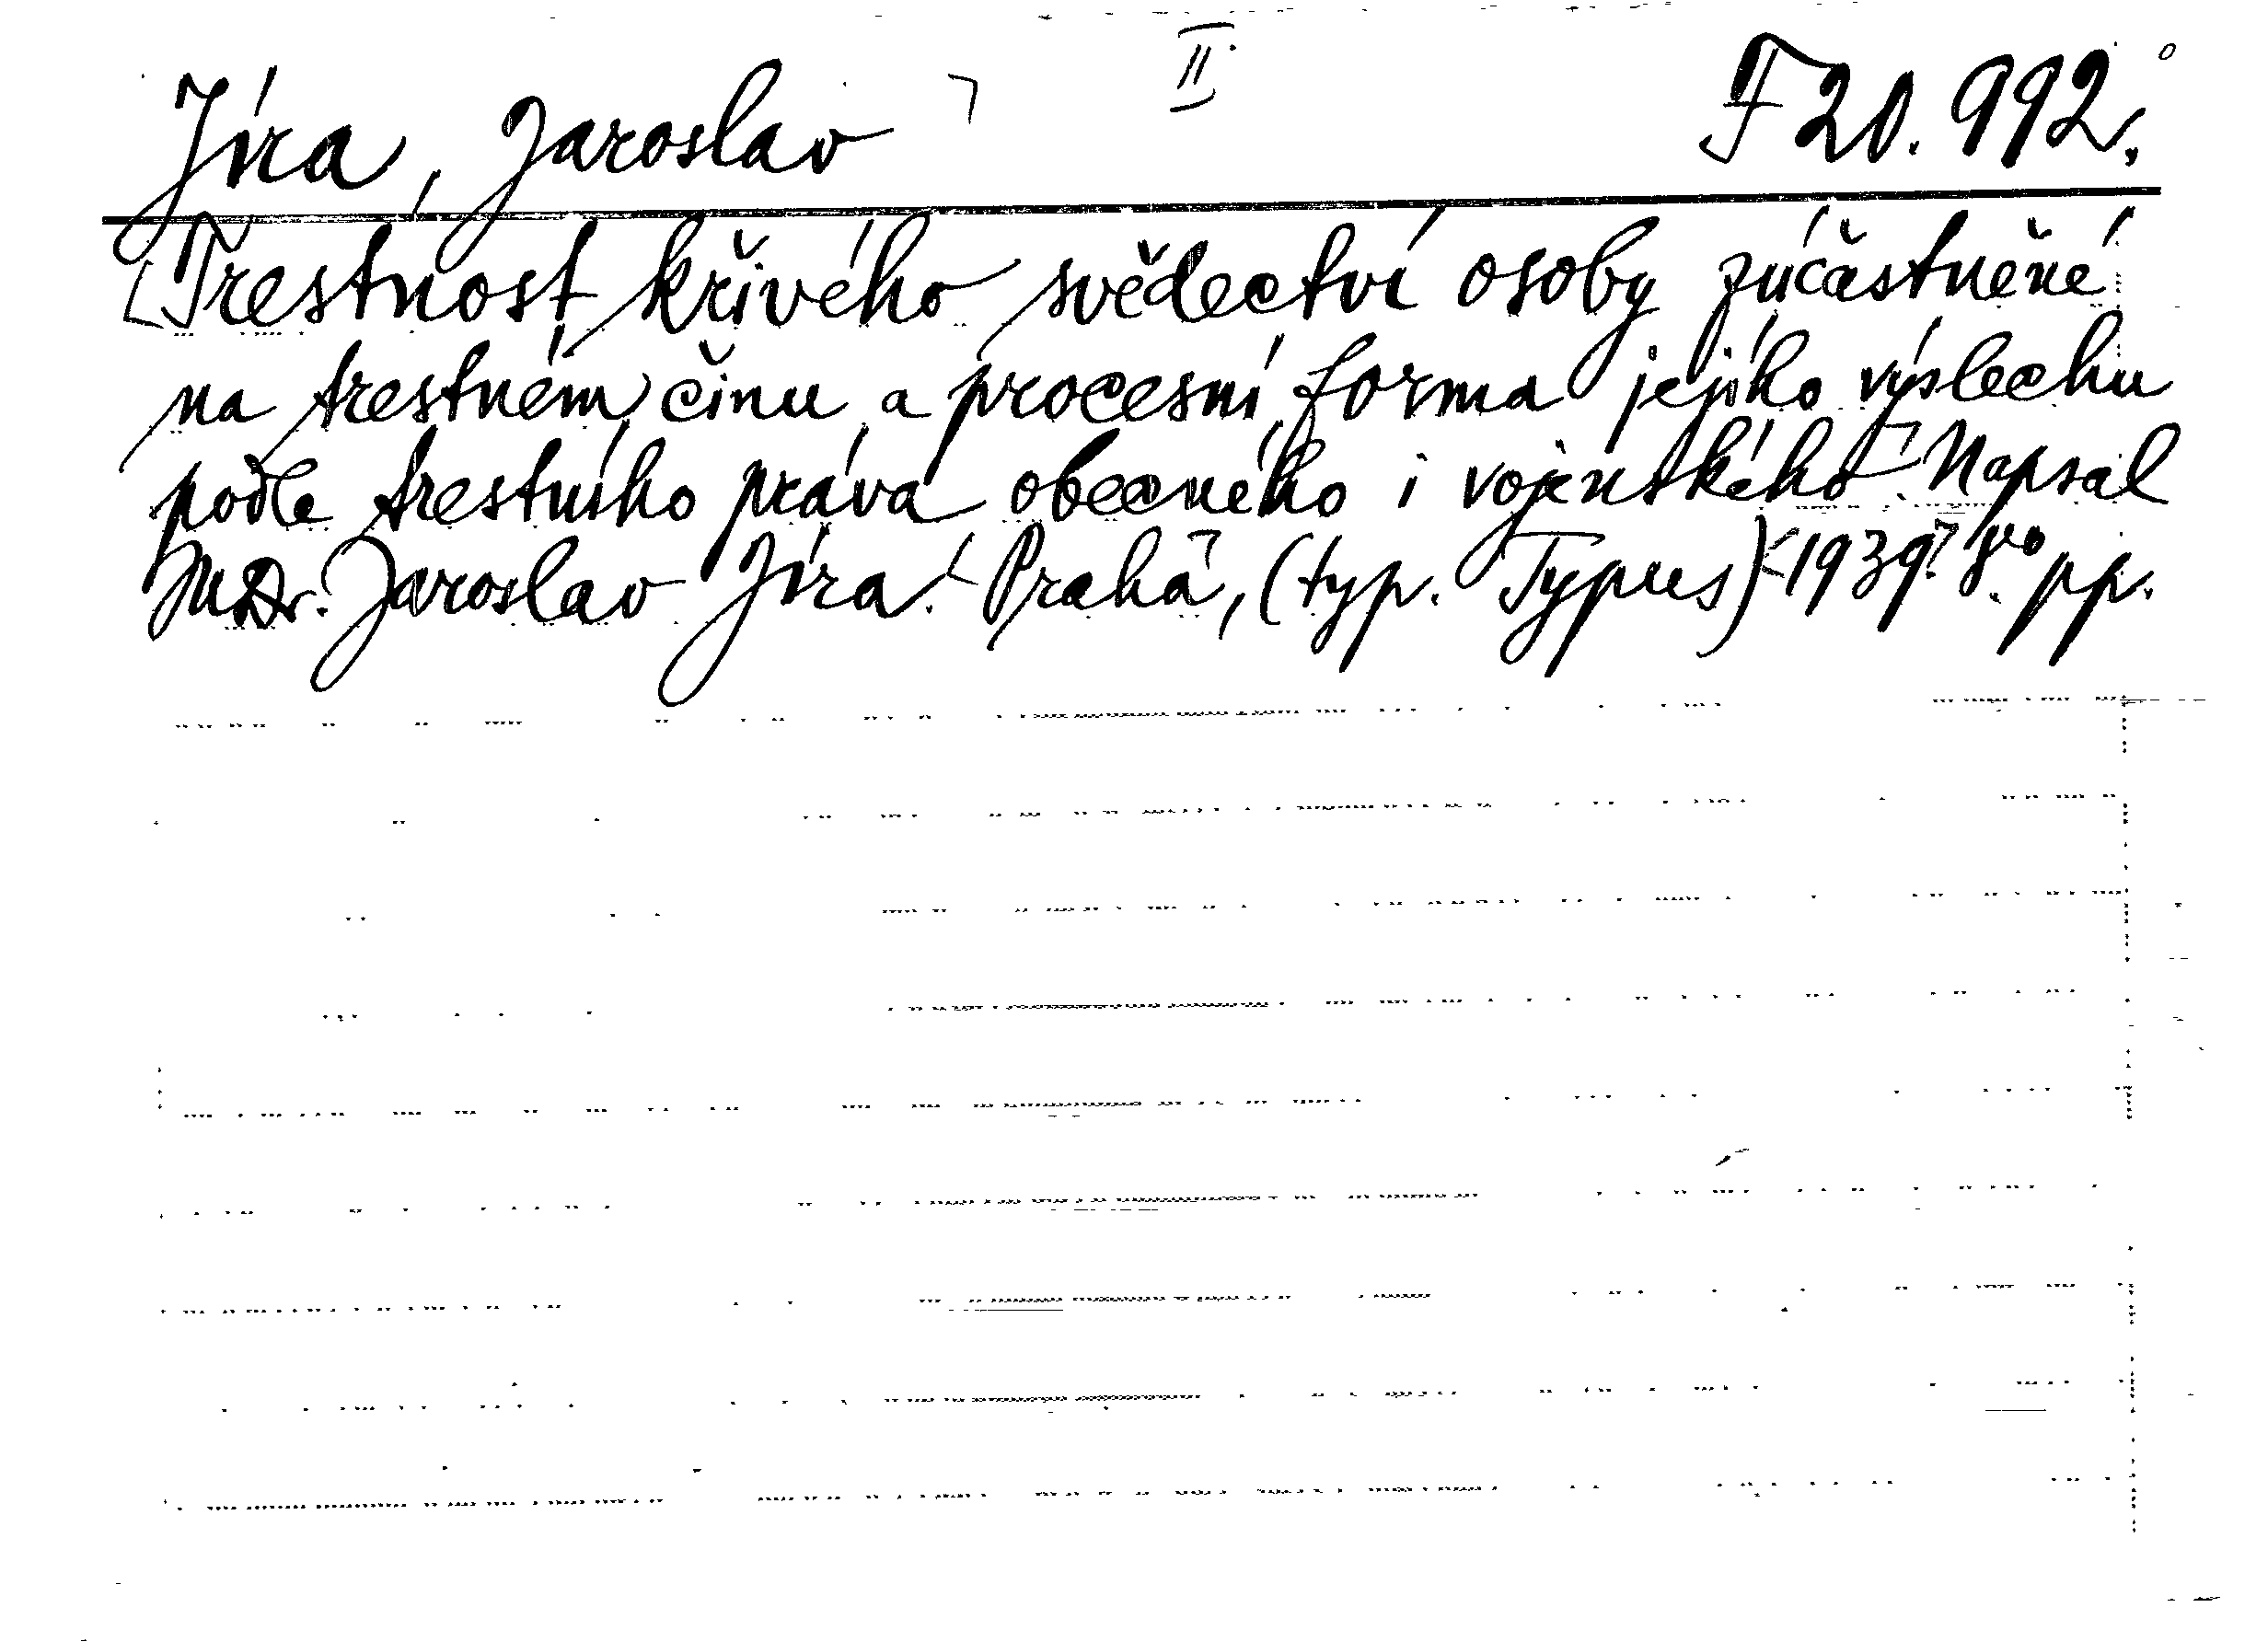 Jíra, Jaroslav ⌝ II. F 20.992.
⌊Trestnost křivého svědectví osoby zúčastněné
na trestném činu a procesní forma jejího výslechu
podle trestního práva obecného i vojenského⌝ Napsal
JUDr. Jaroslav Jíra. ⌊Praha⌝, (typ. Typus) ⌊1939⌝. 8.vo pp.